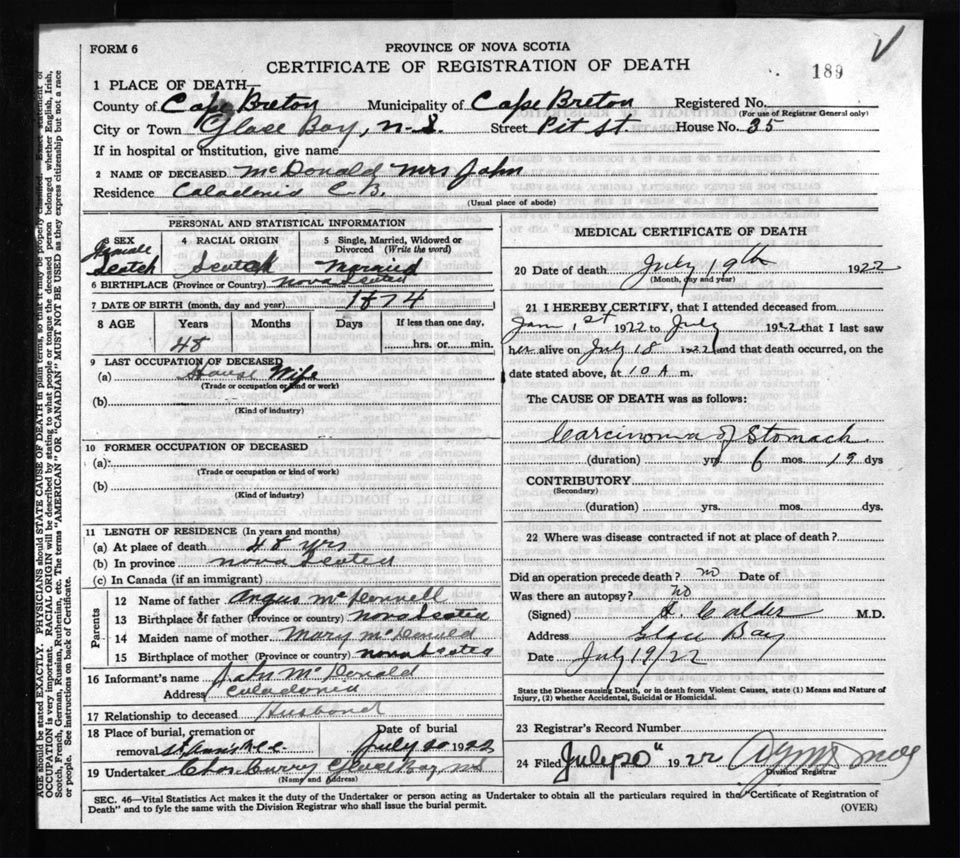 FORM 6
PROVINCE OF NOVA SCOTIA
CERTIFICATE OF REGISTRATION OF DEATH
189
1 PLACE OF DEATH—
County of Cape Breton Municipality of Cape Breton Registered No.
(For use of Registrar General only)
City or Town Glace Bay, N.S. Street Pit St. House No. 35
If in hospital or institution, give name
2 NAME OF DECEASED McDonald Mrs John
Residence Caladonia C.B.
(Usual place of abode)
PERSONAL AND STATISTICAL INFORMATION
3 SEX
Female
Scotch
4 RACIAL ORIGIN
Scotch
5 Single, Married, Widowed or Divorced (Write the word)
Married
6 BIRTHPLACE (Province or Country) Nova Scotia
7 DATE OF BIRTH (month, day and year) 1874
8 AGE Years Months Days If less than one day,
48 hrs. or min.
9 LAST OCCUPATION OF DECEASED
(a) House Wife
(Trade or occupation or kind or work)
(b)
(Kind of industry)
10 FORMER OCCUPATION OF DECEASED
(a)
(Trade or occupation or kind of work)
(b)
(Kind of industry)
11 LENGTH OF RESIDENCE (In years and months)
(a) At place of death 48 yrs
(b) In province Nova Scotia
(c) In Canada (if an immigrant)
Parents
12 Name of father Angus McDonnell
13 Birthplace of father (Province or country) Nova Scotia
14 Maiden name of mother Mary McDonald
15 Birthplace of mother (Province or country) Nova Scotia
16 Informant's name John McDonald
Address Caladonia
17 Relationship to deceased Husband
18 Place of burial, cremation or Date of burial
removal St Anns July 20 1922
19 Undertaker Chas Curry Glace Bay, NS
(Name and Address)
MEDICAL CERTIFICATE OF DEATH
20 Date of death July 19th 1922
(Month, day and year)
21 I HEREBY CERTIFY, that I attended deceased from
Jan 1st 1922 to July 1922 that I last saw
her alive on July 18 1922 and that death occurred, on the
date stated above, at 10 A m.
The CAUSE OF DEATH was as follows:
Carcinoma of Stomach
(duration) yrs 6 mos. 19 dys
CONTRIBUTORY
(Secondary)
(duration) yrs. mos. dys
22 Where was disease contracted if not at place of death?
Did an operation precede death? no Date of
Was there an autopsy? no
(Signed) Calder M.D.
Address Glace Bay
Date July 19/22
State the Disease causing Death, or in death from Violent Causes, state (1) Means and Nature of
Injury, (2) whether Accidental, Suicidal or Homicidal.
23 Registrar's Record Number
24 Filed July 20" 1922
Division Registrar
SEC. 46—Vital Statistics Act makes it the duty of the Undertaker or person acting as Undertaker to obtain all the particulars required in the "Certificate of Registration of
Death" and to fyle the same with the Division Registrar who shall issue the burial permit.
(OVER)